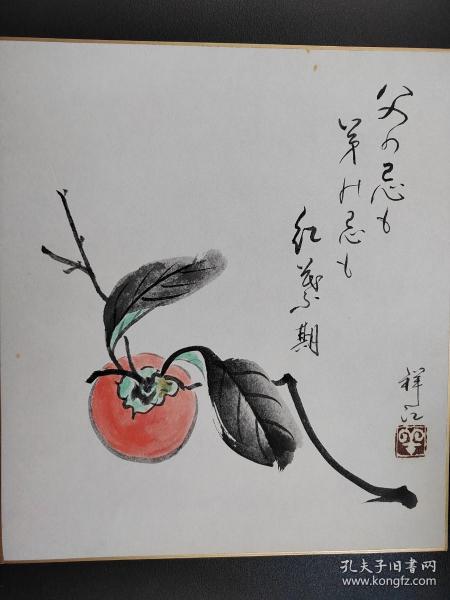 父の忌も
弟の忌も
紅葉期
祥江
孔夫子旧书网
www.kongfz.com